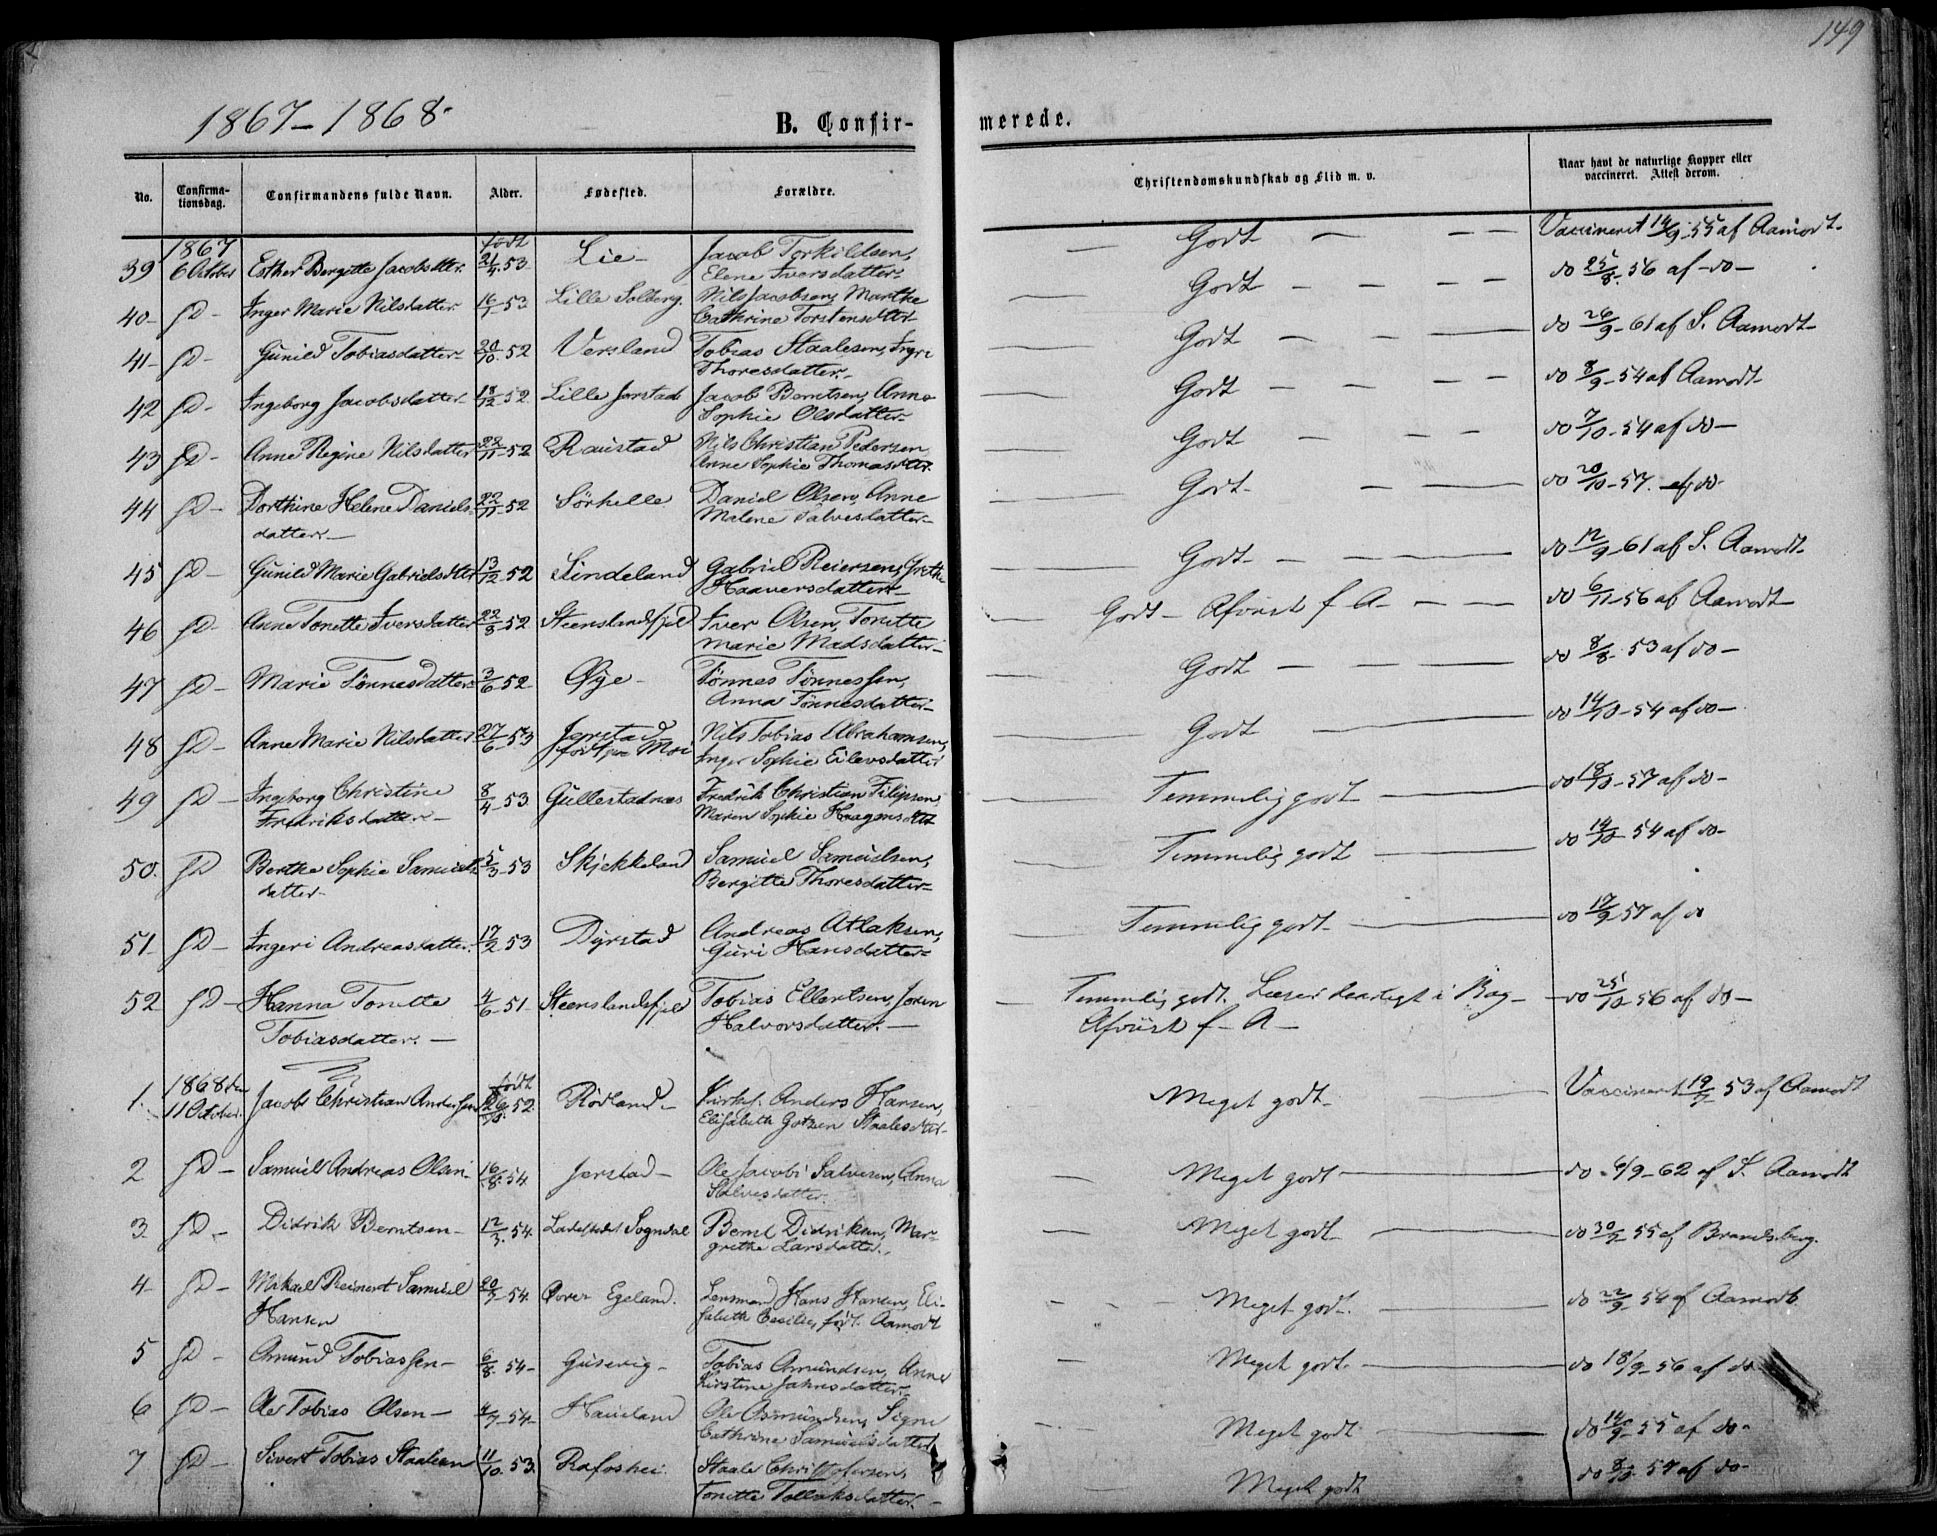 149
1867 – 1868.
B. Confirmerede.
No. Confirmationsdag. Confirmandens fulde Navn. Alder. Fødested. Forældre. Christendomskundskab og Flid m. v. Naar havt de naturlige Kopper eller vaccineret. Attest derom.
1867 født
39 6 October Esther Bergitte Jacobsdtter. 21/4 53 Lie – Jacob Torkildsen, Elene Iversdatter. Godt Vaccineret 14/9 – 55 af Aamodt –
40 – D – Inger Marie Nilsdatter 16/1 53 Lille Solberg. Nils Jacobsen, Marthe Cathrine Torstensdtter Godt do 25/8 – 56 af – do –
41 – D – Gunild Tobiasdatter – 20/10 52 Versland Tobias Staalesen, Ingri Thoresdatter. Godt do 26/9 – 61 af S. Aamodt –
42 D – Ingeborg Jacobsdatter – 18/12 52 Lille Jerstad Jacob Berntsen, Anne Sophie Olsdatter – Godt do 8/9 – 54 af Aamodt –
43 D – Anne Regine Nilsdatter 22/11 – 52 Raustad Nils Christian Pedersen, Anne Sophie Thomasdtter. Godt do 7/10 – 54 af do –
44 D – Dorthine Helene Danielsdatter – 22/11 52 Sørhelle Daniel Olsen, Anne Malene Salvesdatter – Godt – do 20/10 – 57. af do –
45 D – Gunild Marie Gabrielsdtter 13/12 52 Sindeland Gabriel Reiersen, Grethe Haaversdatter – Godt – do 12/9 – 61 af S. Aamodt –
46 D – Anne Tonette Iversdatter 22/8 52 Steenslandsfjel Iver Olsen, Tonette Marie Madsdatter – Godt – Afviist f A – do 6/11 – 56 af Aamodt –
47 D – Marie Tönnesdatter 3/6 52 Øye – Tönnes Tönnessen, Anna Tönnesdatter – Godt do 8/8 53 af do –
48 D – Anne Marie Nilsdatter 27/6 – 53 Jerstad født paa Moi Nils Tobias Abrahamsen, Inger Sophie Eilevsdatter Godt do 14/10 – 54 af do –
49 D – Ingeborg Christine Fredriksdatter – 8/4 – 53 Gullestadnæs Fredrik Christian Filipsen, Maren Sophie Haagensdtter Temmelig godt do 18/10 – 57 af do –
50. D Berthe Sophie Samuelsdatter – 5/3 – 53 Skjekkeland Samuel Samuelsen, Bergitte Thoresdatter – Temmelig godt do 14/10 – 54 af do –
51 – D – Ingeri Andreasdatter. 17/2 53 Dyrstad Andreas Atlaksen, Guri Hansdatter – Temmelig godt – do 17/9 57 af do
52 D – Hanna Tonette Tobiasdatter. – 4/6 – 51 – Steenslandsfjel Tobias Ellertsen, Joren Halvorsdatter. – Temmelig godt. Læser daarligt i Bog – Afviist f – A – do 25/10 – 56 af do –
1868 den født
1. 11 October. Jacob Christian Anderssen 52. Rödland – Kirkes. Anders Hansen, Elisabeth Gotzen Staalesdtter – Meget godt – Vaccineret 19/7 – 53 af Aamodt
2 D – Samuel Andreas Olsen – 16/8. 54. Jerstad – Ole Jacobi Salvesen, Anna Salvesdatter. Meget godt do – 6/9 – 62 af S. Aamodt
3. D – Didrik Berntsen – 12/3. 54. Ladestedet Sogndal Bernt Didriksen, Margrethe Larsdatter. Meget godt do 30/7 – 55 af Brandsberg.
4 – D – Mikael Reinert Samuel Hansen 20/7 – 54. Øvre Egeland. Lensmand Hans Hansen, Elisabeth Cecilie, født Aamodt Meget godt. do 22/9 – 54 af Aamodt
5 D – Amund Tobiassen – 6/8. 54 – Gusevig – Tobias Amundsen, Anne Kirstine Jahnsdatter – Meget godt – do 18/9 – 56 af do
6 D – Ole Tobias Olsen – 4/7 – 54 – Haueland Ole Osmundsen, Signe Cathrine Samuelsdatter Meget godt do 14/9 – 55 af do –
7 D – Sivert Tobias Staalesen 11/10. 53. Rafoshei. Staale Christofersen, Tonette Tollaksdatter. – Meget godt do 8/10 – 54 af do –